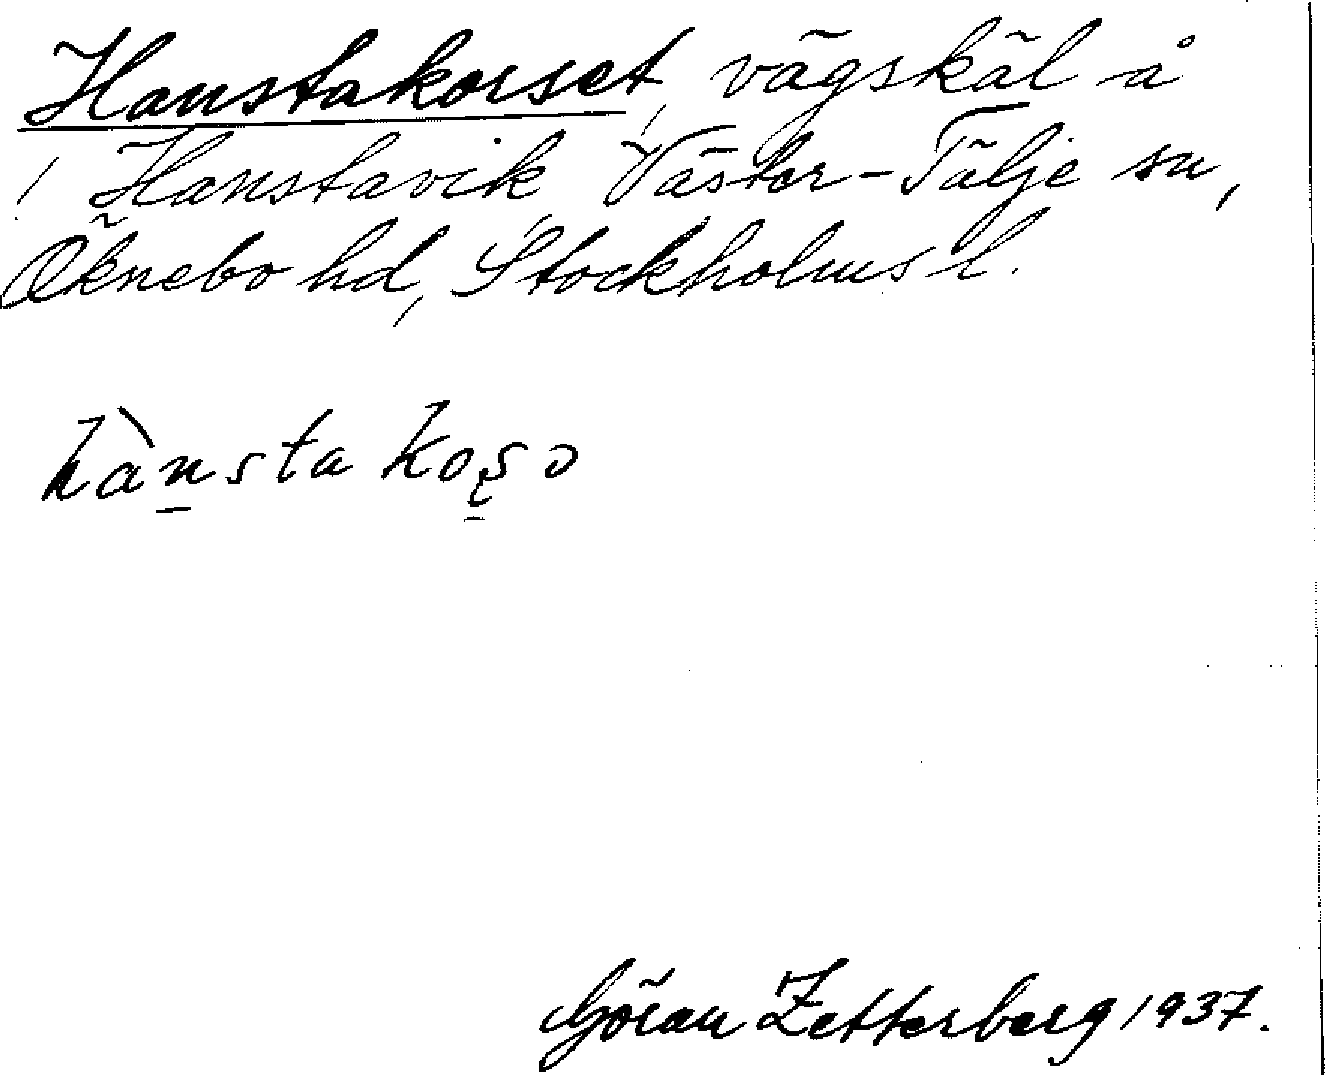 Hanstakorset, vägskäl å
Hanstavik Väster-Tälje sn,
Öknebo hd, Stockholms l.
hànsta koʂə
Göran Zetterberg 1937.